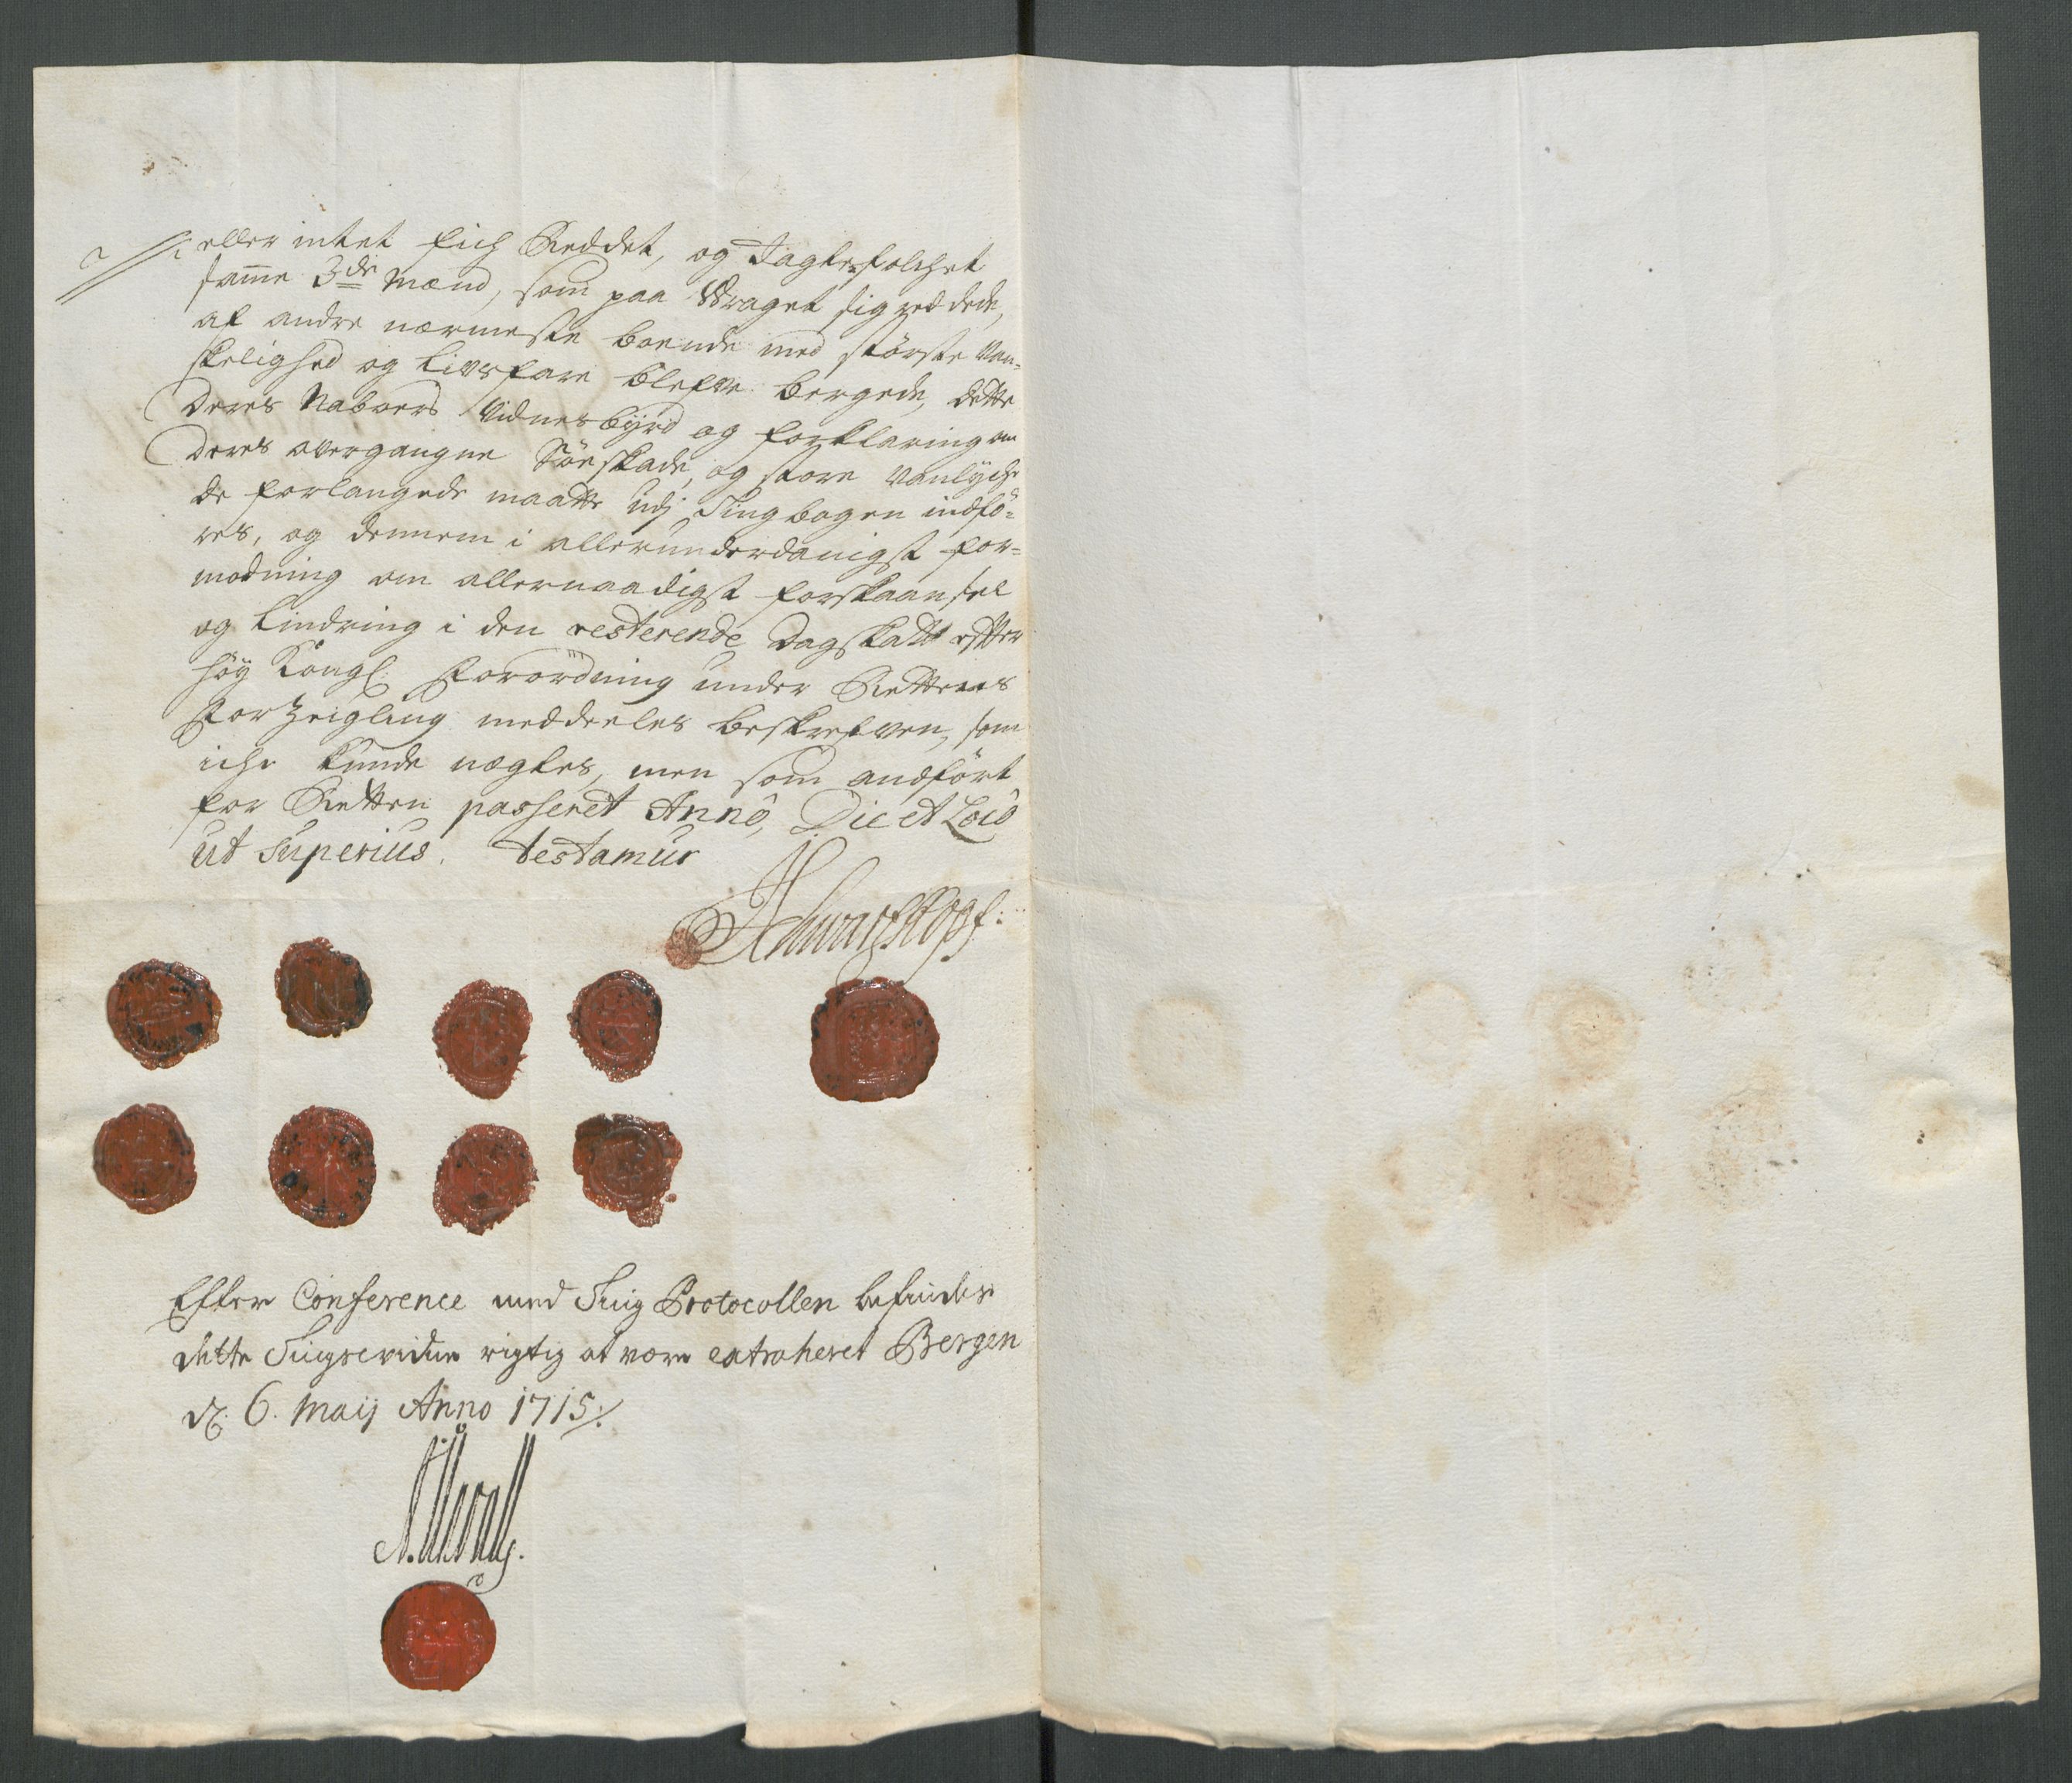 eller intet fich Reddet, og Jagtefolchet
samme 3de Mænd, som paa Wraget sig reddede,
af andre nærmeste boende med störste Van-
skelighed og Livsfare blefve bergede, dette
Deres Naboers Vidnesbÿrd og forklaring om
Deres overgangne Söeskade, og store vanlÿche
de forlangede maatte udj Tingbogen indfö-
res, og dennem i allerunderdanigst for-
modning om allernaadigst forskaansel
og Lindring i den resterende Dagskatt efter
höÿ Kongl: Forordning under Rettens
Forzeigling meddeeles beskrefven, som
iche kunde nægtes, men som andfört
for Retten passeret Anno, Die et Loco
ut superius. testamur
Efter Conference med Ting Protocollen befindes
dette Tingsvidne rigtig at være extraheret Bergen
d: 6. Maij Anno 1715